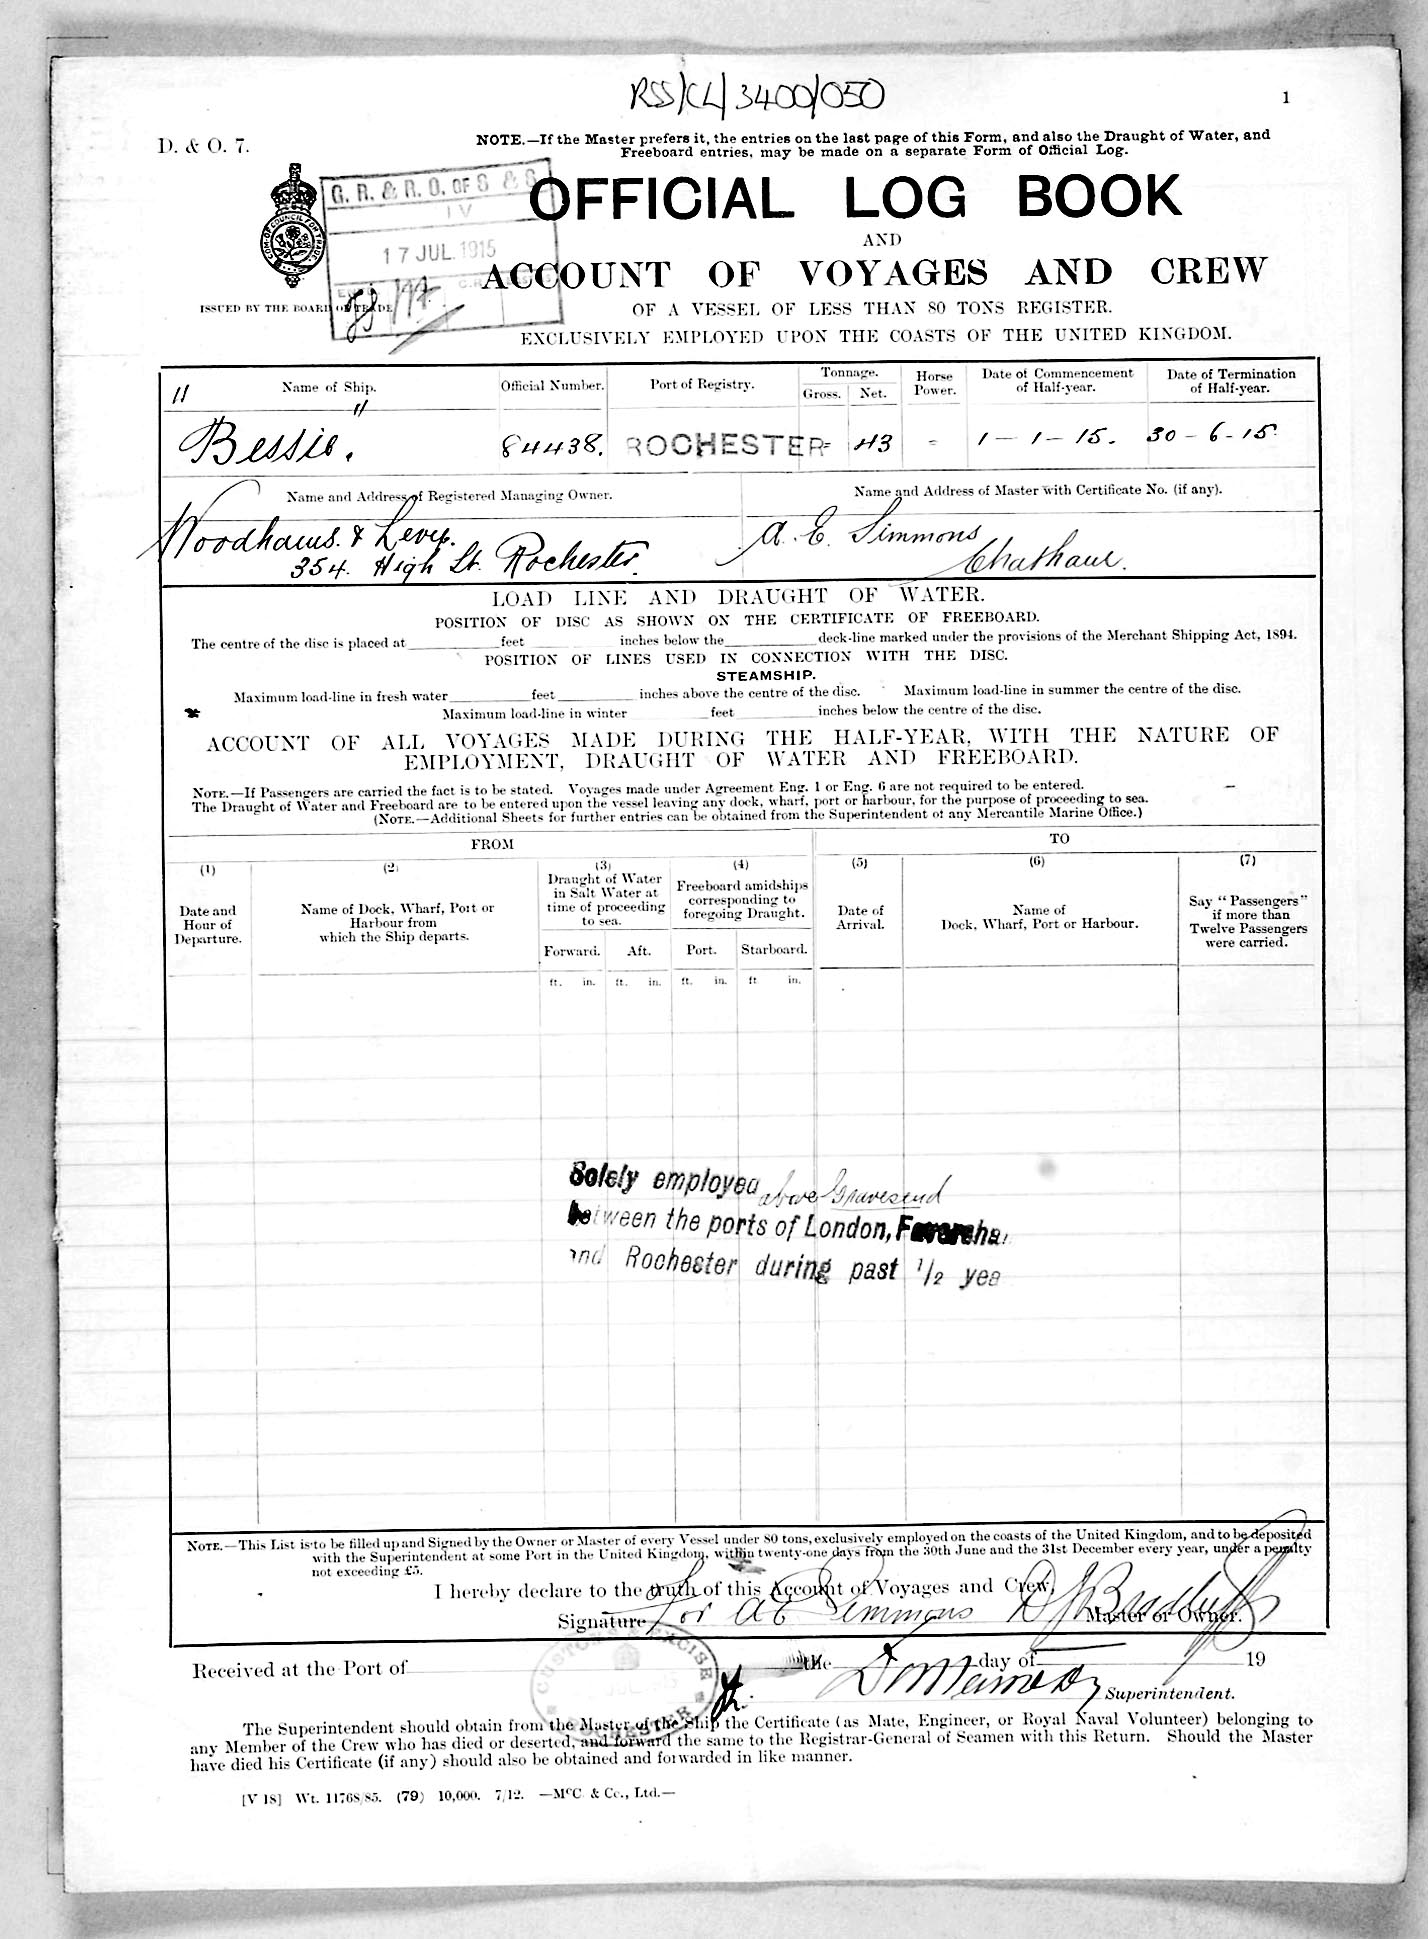 RSS/CL/3400/050
1
D. & O. 7.
NOTE.—If the Master prefers it, the entries on the last page of this Form, and also the Draught of Water, and
Freeboard entries, may be made on a separate Form of Official Log.
G. R. & R. O. OF S & S
IV
17 JUL. 1915
COM. OF COUNCIL FOR TRADE
ISSUED BY THE BOARD OF TRADE
OFFICIAL LOG BOOK
AND
ACCOUNT OF VOYAGES AND CREW
OF A VESSEL OF LESS THAN 80 TONS REGISTER.
EXCLUSIVELY EMPLOYED UPON THE COASTS OF THE UNITED KINGDOM.
Name of Ship. Official Number. Port of Registry. Tonnage. Gross. Net. Horse Power. Date of Commencement of Half-year. Date of Termination of Half-year.
"Bessie." 84438. ROCHESTER - 43 - 1-1-15. 30-6-15
Name and Address of Registered Managing Owner. Name and Address of Master with Certificate No. (if any).
Woodhams & Levy. A. E. Simmons
354. High St. Rochester. Chatham.
LOAD LINE AND DRAUGHT OF WATER.
POSITION OF DISC AS SHOWN ON THE CERTIFICATE OF FREEBOARD.
The centre of the disc is placed at feet inches below the deck-line marked under the provisions of the Merchant Shipping Act, 1894.
POSITION OF LINES USED IN CONNECTION WITH THE DISC.
STEAMSHIP.
Maximum load-line in fresh water feet inches above the centre of the disc. Maximum load-line in summer the centre of the disc.
Maximum load-line in winter feet inches below the centre of the disc.
ACCOUNT OF ALL VOYAGES MADE DURING THE HALF-YEAR, WITH THE NATURE OF
EMPLOYMENT, DRAUGHT OF WATER AND FREEBOARD.
NOTE.—If Passengers are carried the fact is to be stated. Voyages made under Agreement Eng. 1 or Eng. 6 are not required to be entered.
The Draught of Water and Freeboard are to be entered upon the vessel leaving any dock, wharf, port or harbour, for the purpose of proceeding to sea.
(NOTE.—Additional Sheets for further entries can be obtained from the Superintendent of any Mercantile Marine Office.)
FROM TO
(1) (2) (3) (4) (5) (6) (7)
Date and Hour of Departure.
Name of Dock, Wharf, Port or Harbour from which the Ship departs.
Draught of Water in Salt Water at time of proceeding to sea.
Freeboard amidships corresponding to foregoing Draught.
Date of Arrival.
Name of Dock, Wharf, Port or Harbour.
Say "Passengers" if more than Twelve Passengers were carried.
Forward. Aft. Port. Starboard.
ft. in. ft. in. ft. in. ft in.
Solely employed above Gravesend
between the ports of London, Faversha
and Rochester during past 1/2 yea
NOTE.—This List is to be filled up and Signed by the Owner or Master of every Vessel under 80 tons, exclusively employed on the coasts of the United Kingdom, and to be deposited
with the Superintendent at some Port in the United Kingdom, within twenty-one days from the 30th June and the 31st December every year, under a penalty
not exceeding £5.
I hereby declare to the truth of this Account of Voyages and Crew,
Signature For A E Simmons Master or Owner.
CUSTOMS & EXCISE
ROCHESTER
Received at the Port of the day of 19
Superintendent.
The Superintendent should obtain from the Master of the Ship the Certificate (as Mate, Engineer, or Royal Naval Volunteer) belonging to
any Member of the Crew who has died or deserted, and forward the same to the Registrar-General of Seamen with this Return. Should the Master
have died his Certificate (if any) should also be obtained and forwarded in like manner.
[V 18] Wt. 11768/85. (79) 10,000. 7/12. —McC. & Co., Ltd.—